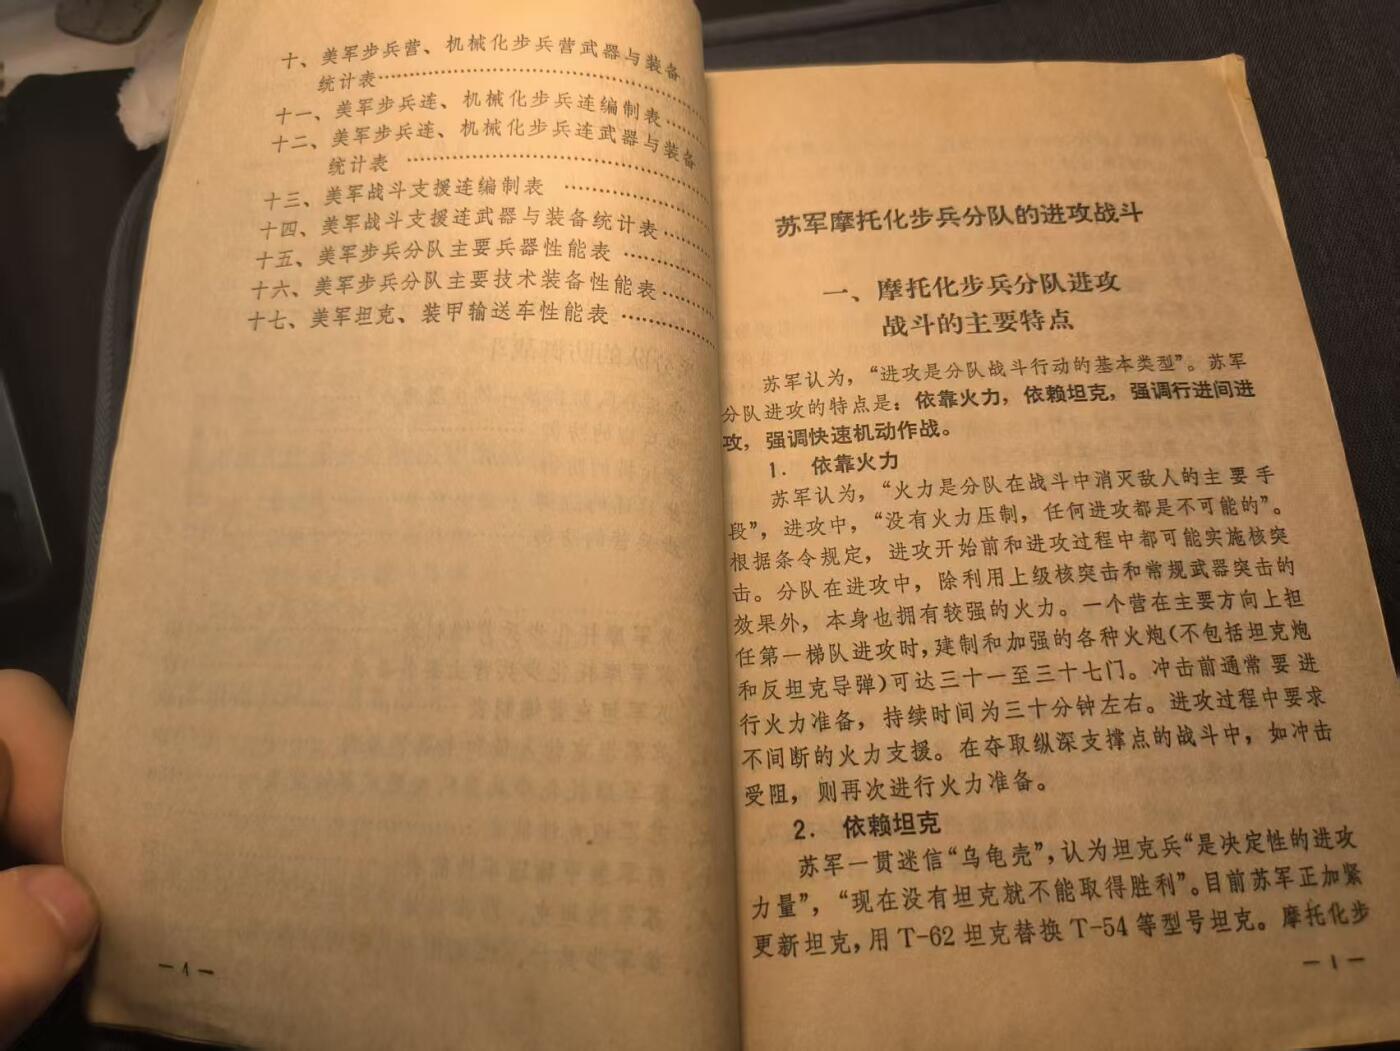 十、美军步兵营、机械化步兵营武器与装备
统计表……………………………………
十一、美军步兵连、机械化步兵连编制表……
十二、美军步兵连、机械化步兵连武器与装备
统计表 ……………………………………
十三、美军战斗支援连编制表 ………………
十四、美军战斗支援连武器与装备统计表……
十五、美军步兵分队主要兵器性能表 …………
十六、美军步兵分队主要技术装备性能表……
十七、美军坦克、装甲输送车性能表 …………
— 4 —
苏军摩托化步兵分队的进攻战斗
一、摩托化步兵分队进攻
战斗的主要特点
苏军认为，“进攻是分队战斗行动的基本类型”。苏军
分队进攻的特点是：依靠火力，依赖坦克，强调行进间进
攻，强调快速机动作战。
1． 依靠火力
苏军认为，“火力是分队在战斗中消灭敌人的主 要 手
段”，进攻中，“没有火力压制，任何进攻都是不可能的”。
根据条令规定，进攻开始前和进攻过程中都可能实施核突
击。分队在进攻中，除利用上级核突击和常规武器突击的
效果外，本身也拥有较强的火力。一个营在主要方向上担
任第一梯队进攻时，建制和加强的各种火炮(不包括坦克炮
和反坦克导弹)可达三十一至三十七门。冲击前通常 要 进
行火力准备，持续时间为三十分钟左右。进攻过程中要求
不间断的火力支援。在夺取纵深支撑点的战斗中，如冲击
受阻，则再次进行火力准备。
2． 依赖坦克
苏军一贯迷信“乌龟壳”，认为坦克兵“是决定性的进攻
力量”，“现在没有坦克就不能取得胜利”。目前苏军正加紧
更新坦克，用T-62坦克替换T-54等型号坦克。摩托化步
— 1 —